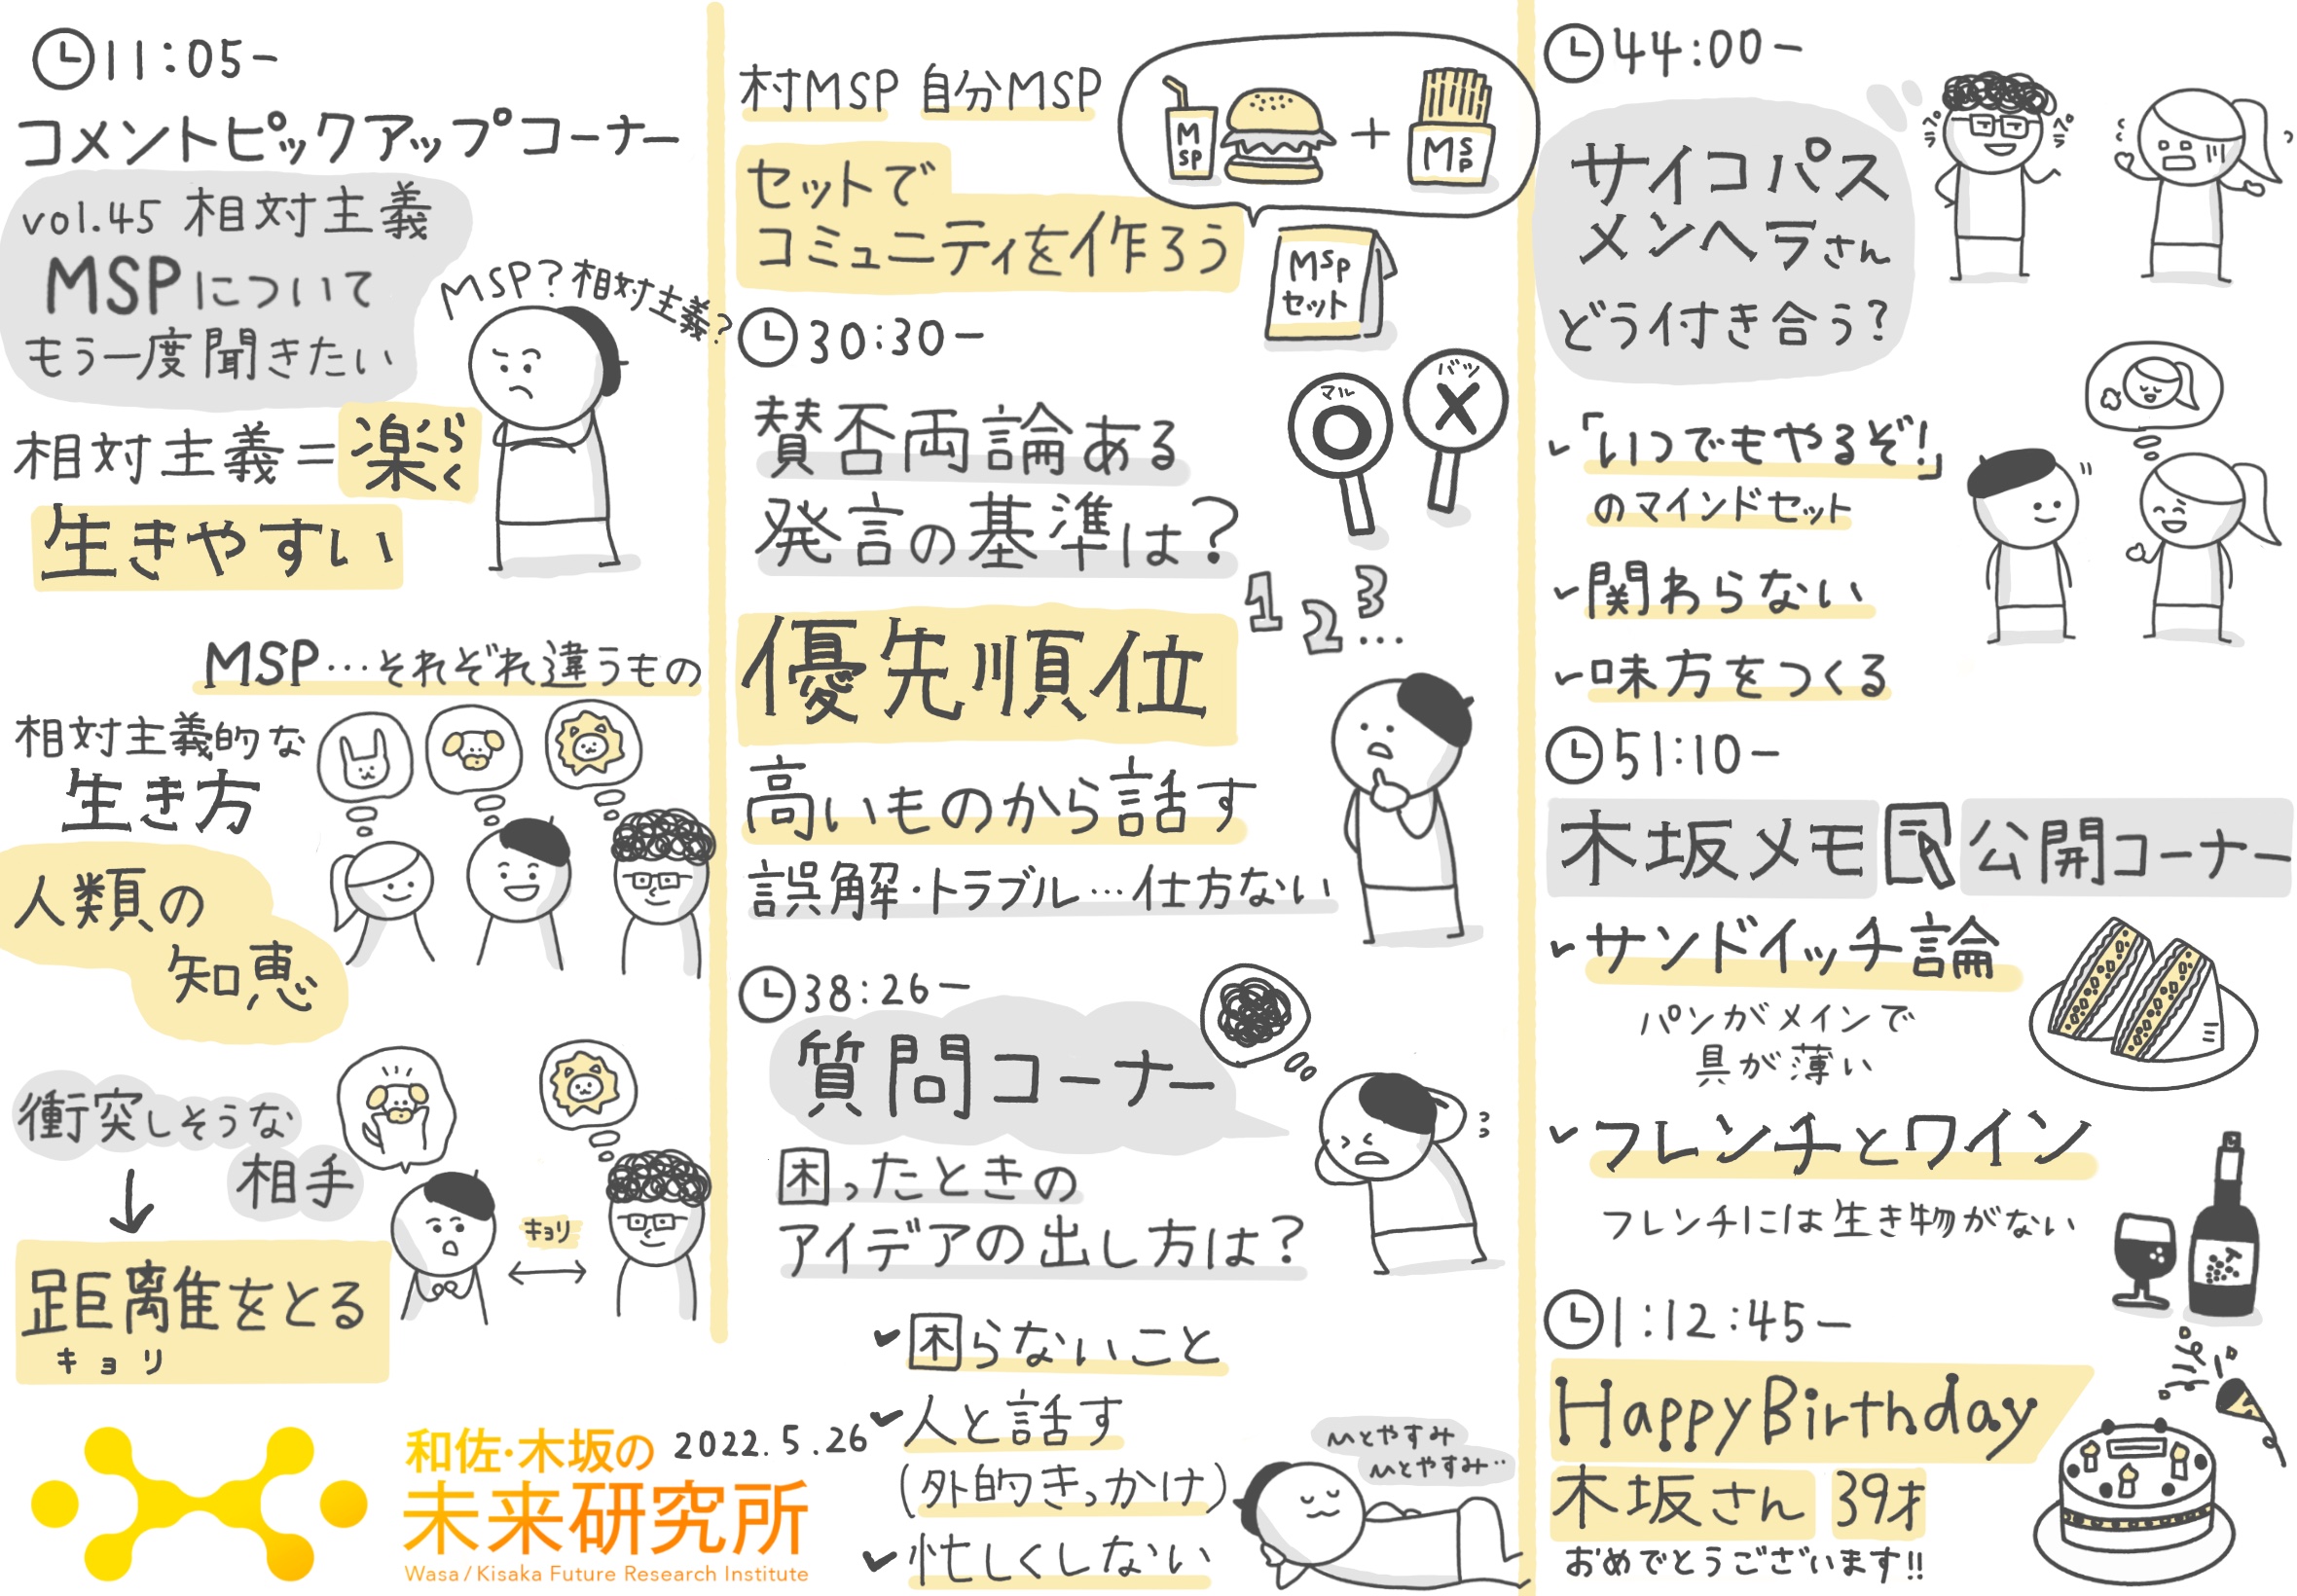 11:05ー
コメントピックアップコーナー
vol.45 相対主義
MSPについて
もう一度聞きたい
MSP?相対主義?
相対主義=楽らく
生きやすい
MSP…それぞれ違うもの
相対主義的な
生き方
人類の
知恵
衝突しそうな
相手
キョリ
距離をとる
キョリ
和佐・木坂の
未来研究所
Wasa / Kisaka Future Research Institute
2022.5.26
村MSP 自分MSP
セットで
コミュニティを作ろう
MSP
+
MSP
MSP
セット
30:30ー
マル
バツ
X
賛否両論ある
発言の基準は?
1 2 3…
優先順位
高いものから話す
誤解・トラブル…仕方ない
38:26ー
質問コーナー
困ったときの
アイデアの出し方は?
✓困らないこと
✓人と話す
(外的きっかけ)
✓忙しくしない
ひとやすみ
ひとやすみ‥
44:00ー
サイコパス
メンヘラさん
どう付き合う?
ペラ
ペラ
✓「いつでもやるぞ!」
のマインドセット
✓関わらない
✓味方をつくる
51:10ー
木坂メモ 公開コーナー
✓サンドイッチ論
パンがメインで
具が薄い
✓フレンチとワイン
フレンチには生き物がない
1:12:45ー
Happy Birthday
木坂さん 39才
おめでとうございます!!